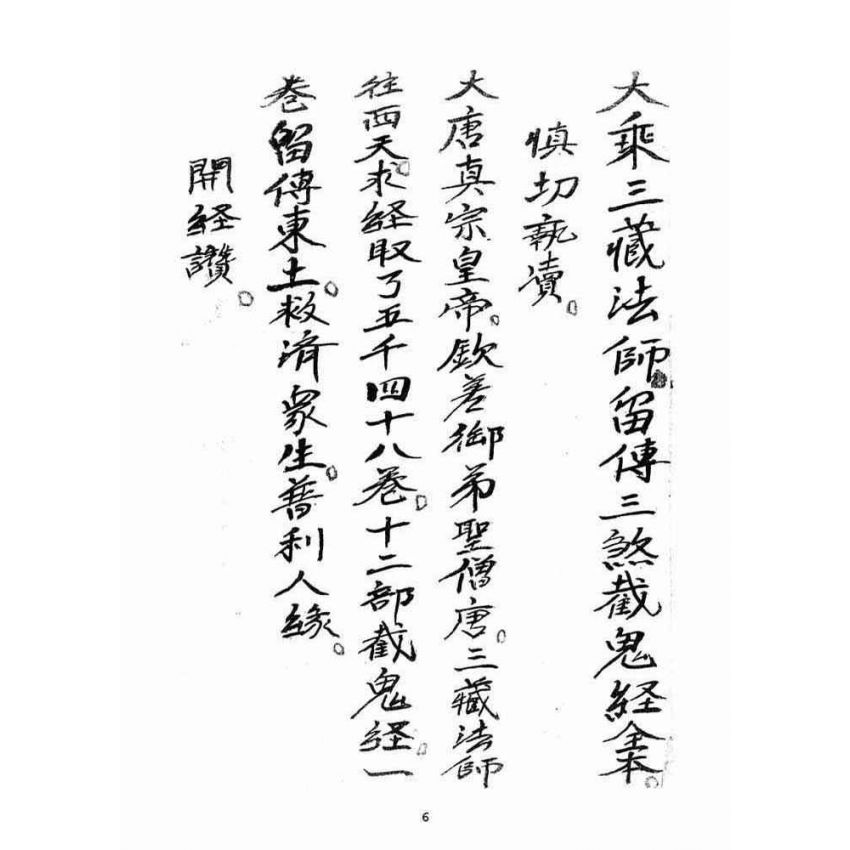 大乘三藏法師留傳三煞截鬼経全本。
慎切執讀。
大唐真宗皇帝。欽差御弟聖僧唐。三藏法師
往西天。求経取了五千四十八卷。十二部截鬼経。一
卷留傳東土。救濟眾生。普利人緣。
開経讚。
6